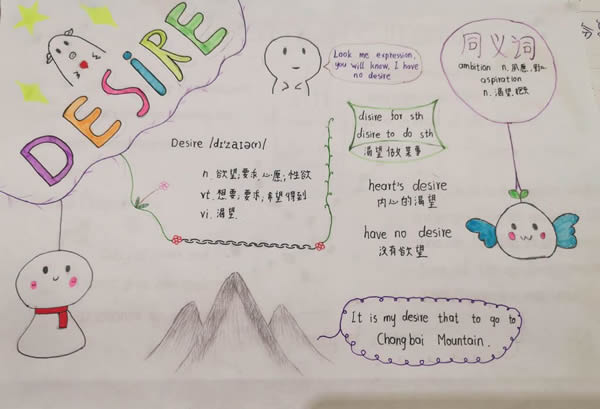 DESIRE
Look me expression,
you will know, I have
no desire
同义词
ambition n. 夙愿,
aspiration
n. 渴望,
Desire /dɪ'zaɪə(r)/
n. 欲望;要求;心愿;性欲
vt. 想要;要求;希望得到
vi. 渴望.
disire for sth
disire to do sth
渴望做某事
heart's desire
内心的渴望
have no desire
没有欲望
It is my desire that to go to
Changbai Mountain.